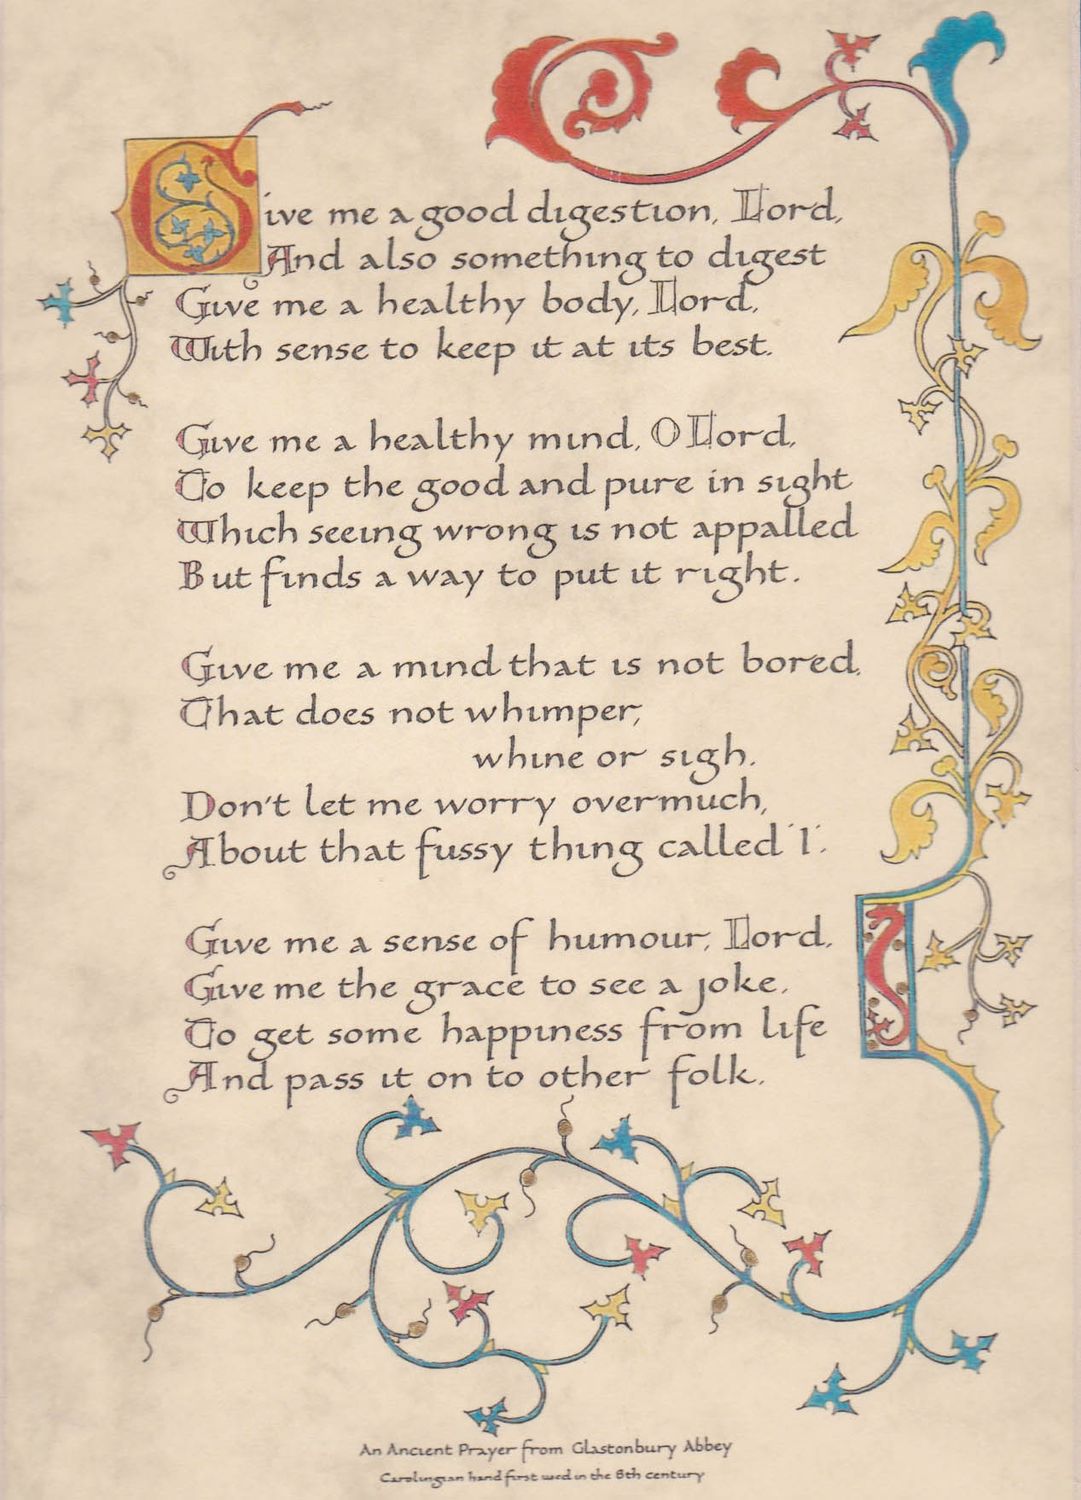 Give me a good digestion, Lord,
And also something to digest
Give me a healthy body, Lord,
With sense to keep it at its best.
Give me a healthy mind, O Lord,
To keep the good and pure in sight
Which seeing wrong is not appalled
But finds a way to put it right.
Give me a mind that is not bored,
That does not whimper,
whine or sigh.
Don't let me worry overmuch,
About that fussy thing called 'I'.
Give me a sense of humour, Lord.
Give me the grace to see a joke,
To get some happiness from life
And pass it on to other folk.
An Ancient Prayer from Glastonbury Abbey
Carolingian hand first used in the 8th century